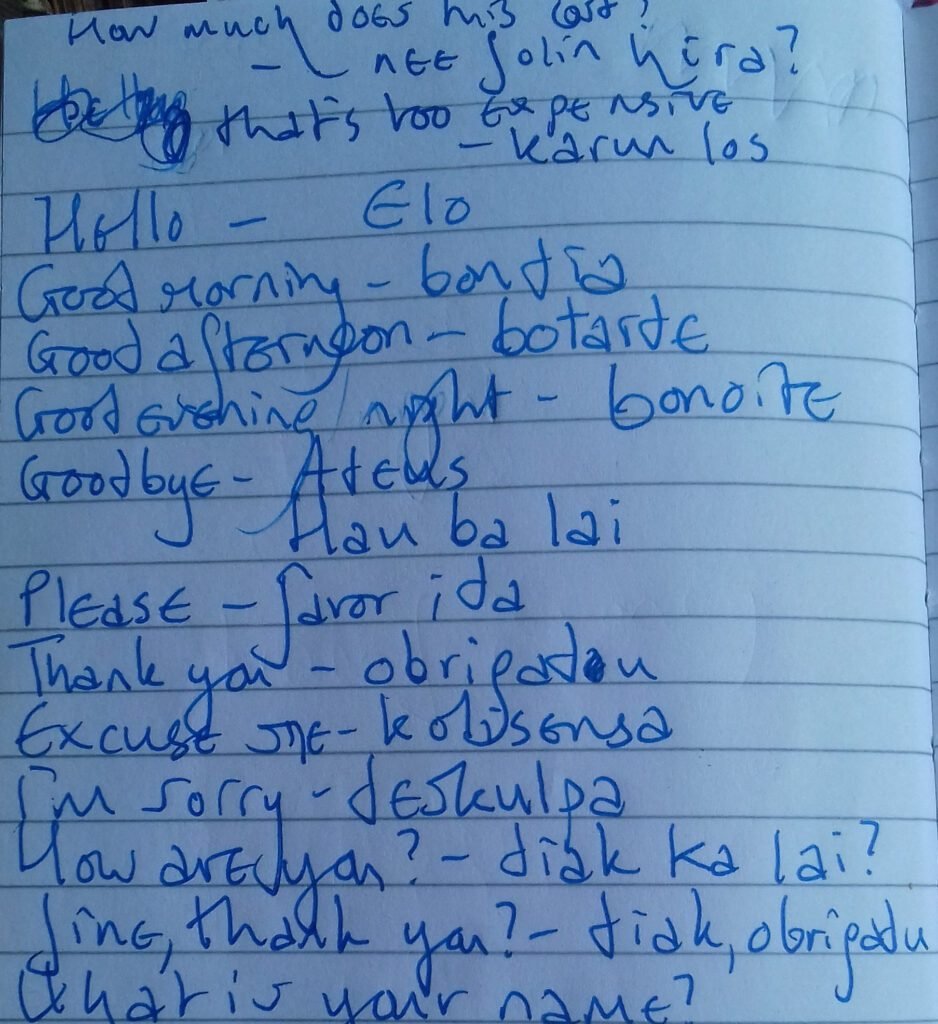 How much does this cost?
- I nee folin hira?
that's too expensive
- karun los
Hello - Elo
Good morning - bondia
Good afternoon - botarde
Good evening/night - bonoite
Goodbye - Adeus
Hau ba lai
Please - favor ida
Thank you - obrigadou
Excuse me - kolisensa
I'm sorry - deskulpa
How are you? - diak ka lai?
fine, thank you? - diak, obrigadu
What is your name?